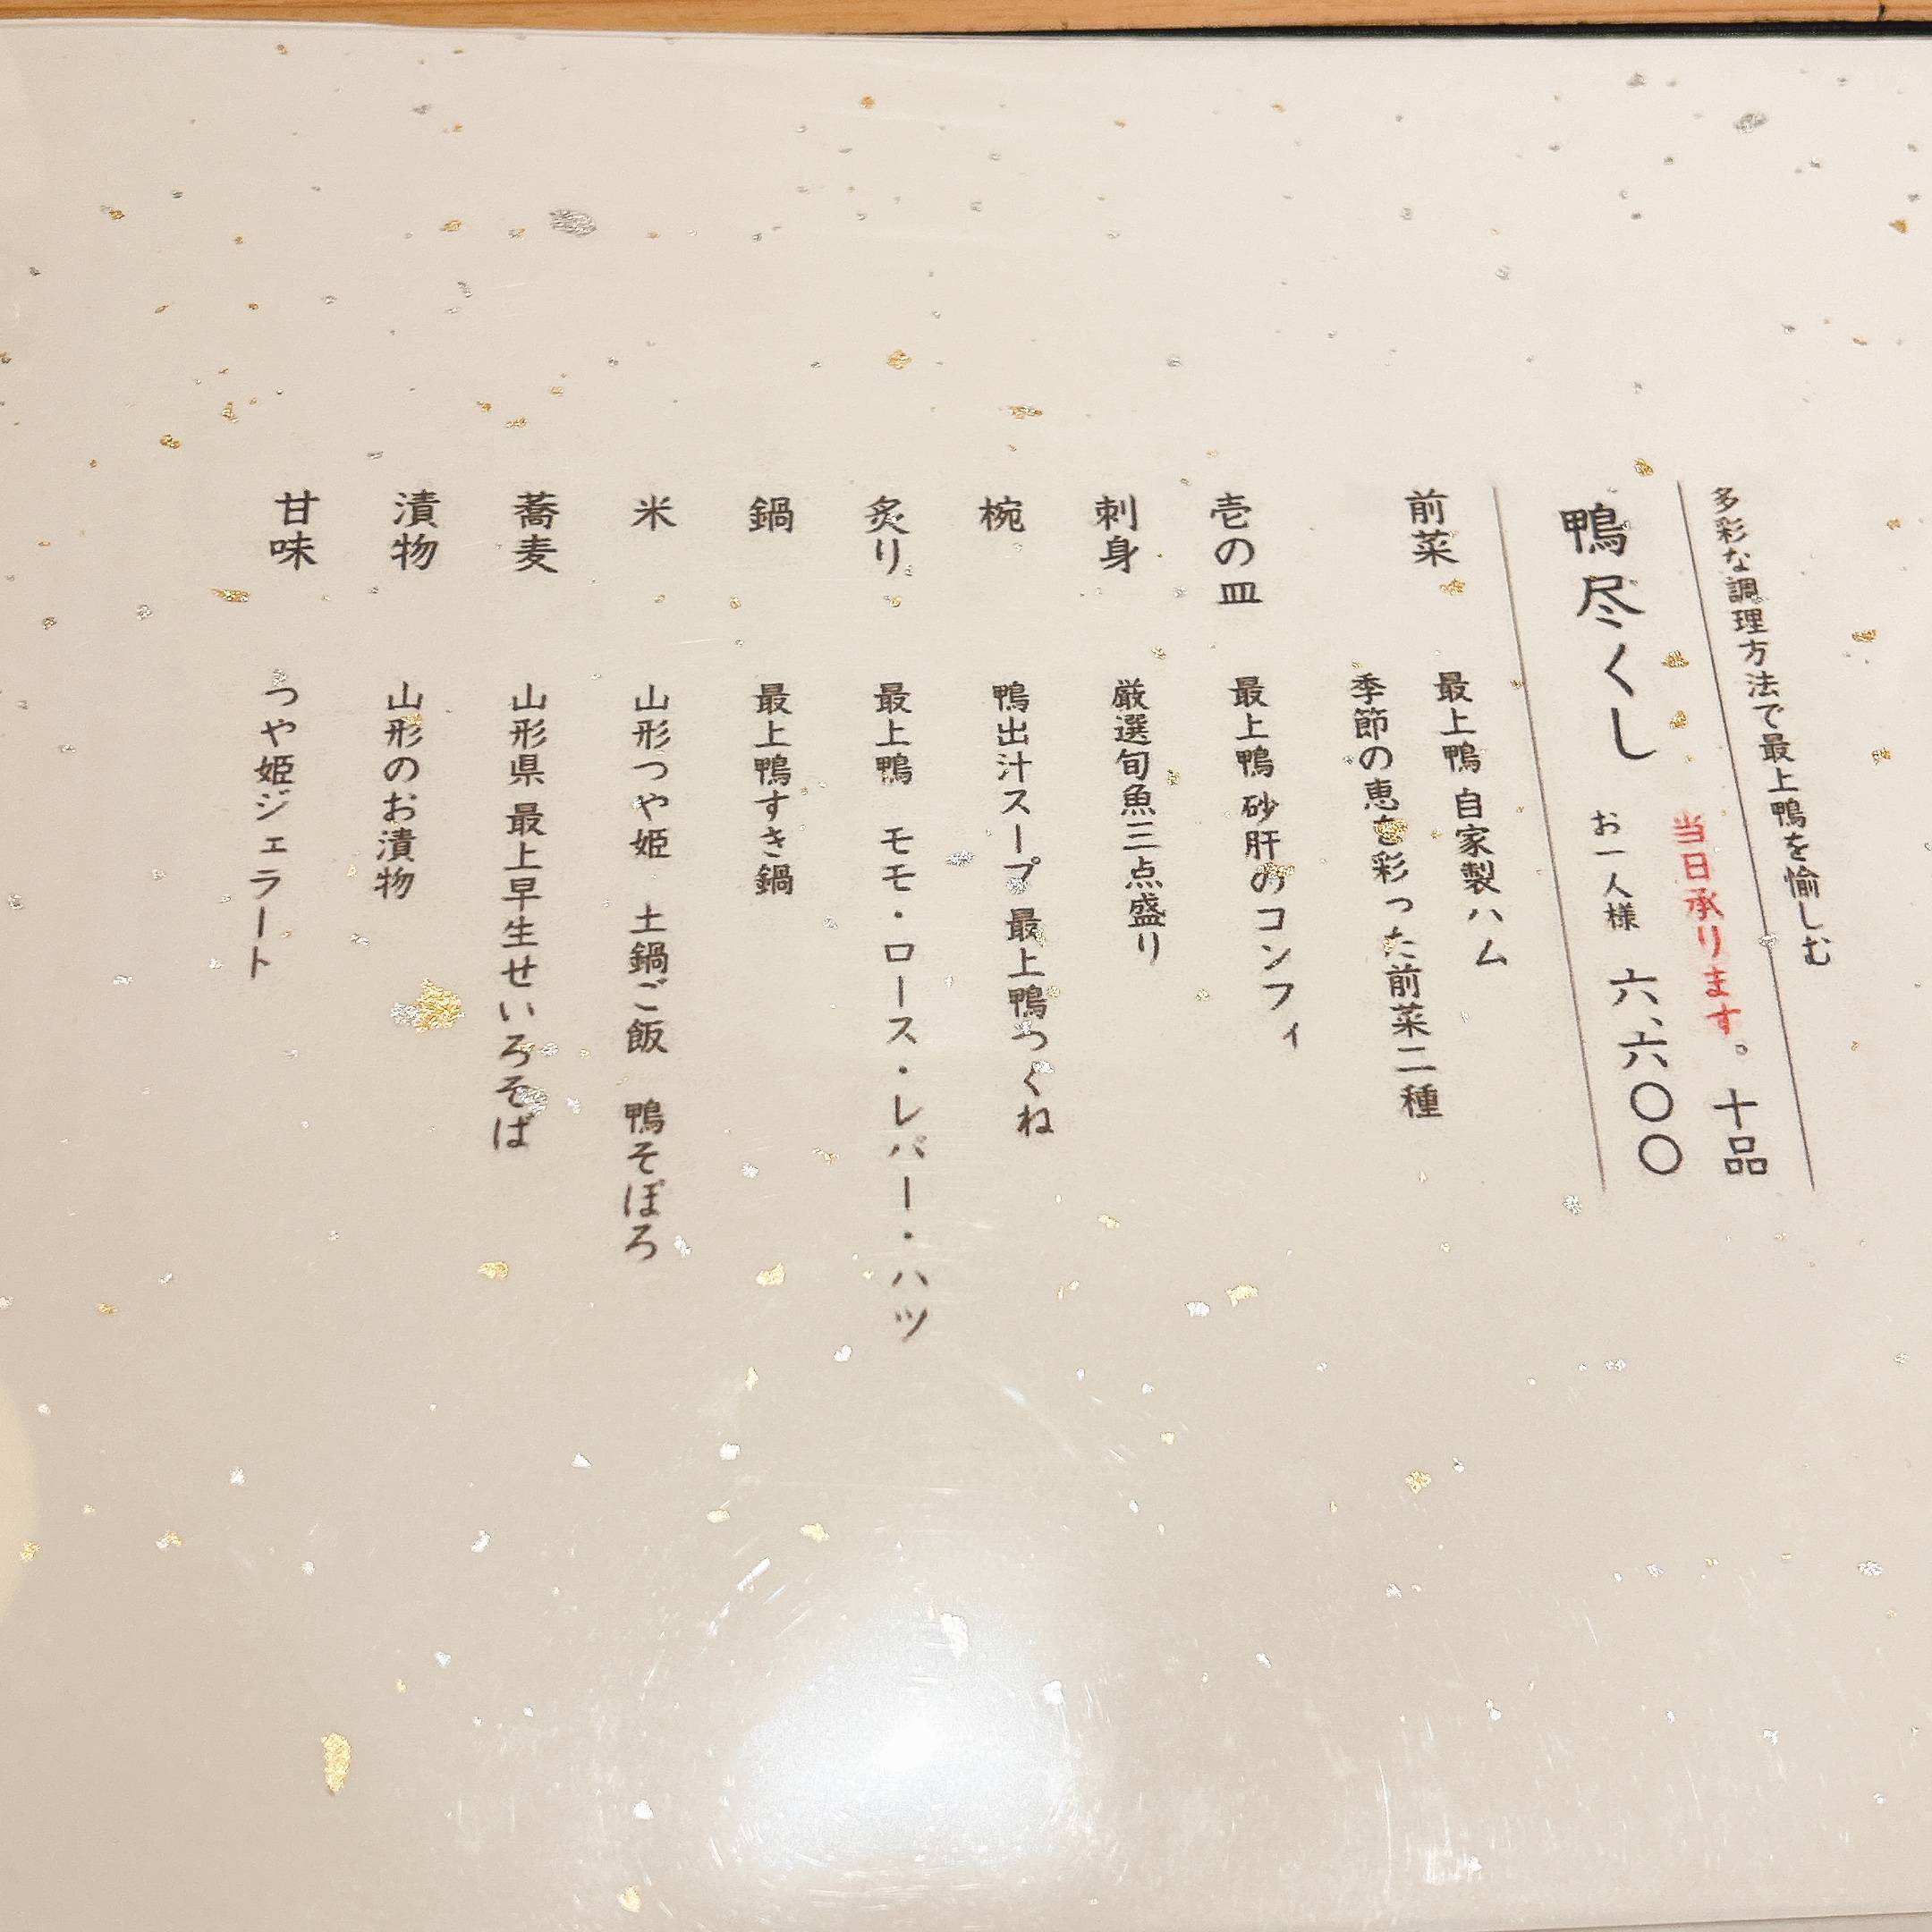 多彩な調理方法で最上鴨を愉しむ
鴨尽くし
当日承ります。 十品
お一人様 六、六〇〇
前菜 最上鴨 自家製ハム
季節の恵を彩った前菜二種
壱の皿 最上鴨 砂肝のコンフィ
刺身 厳選旬魚三点盛り
椀 鴨出汁スープ 最上鴨つくね
炙り 最上鴨 モモ・ロース・レバー・ハツ
鍋 最上鴨すき鍋
米 山形つや姫 土鍋ご飯 鴨そぼろ
蕎麦 山形県 最上早生せいろそば
漬物 山形のお漬物
甘味 つや姫ジェラート